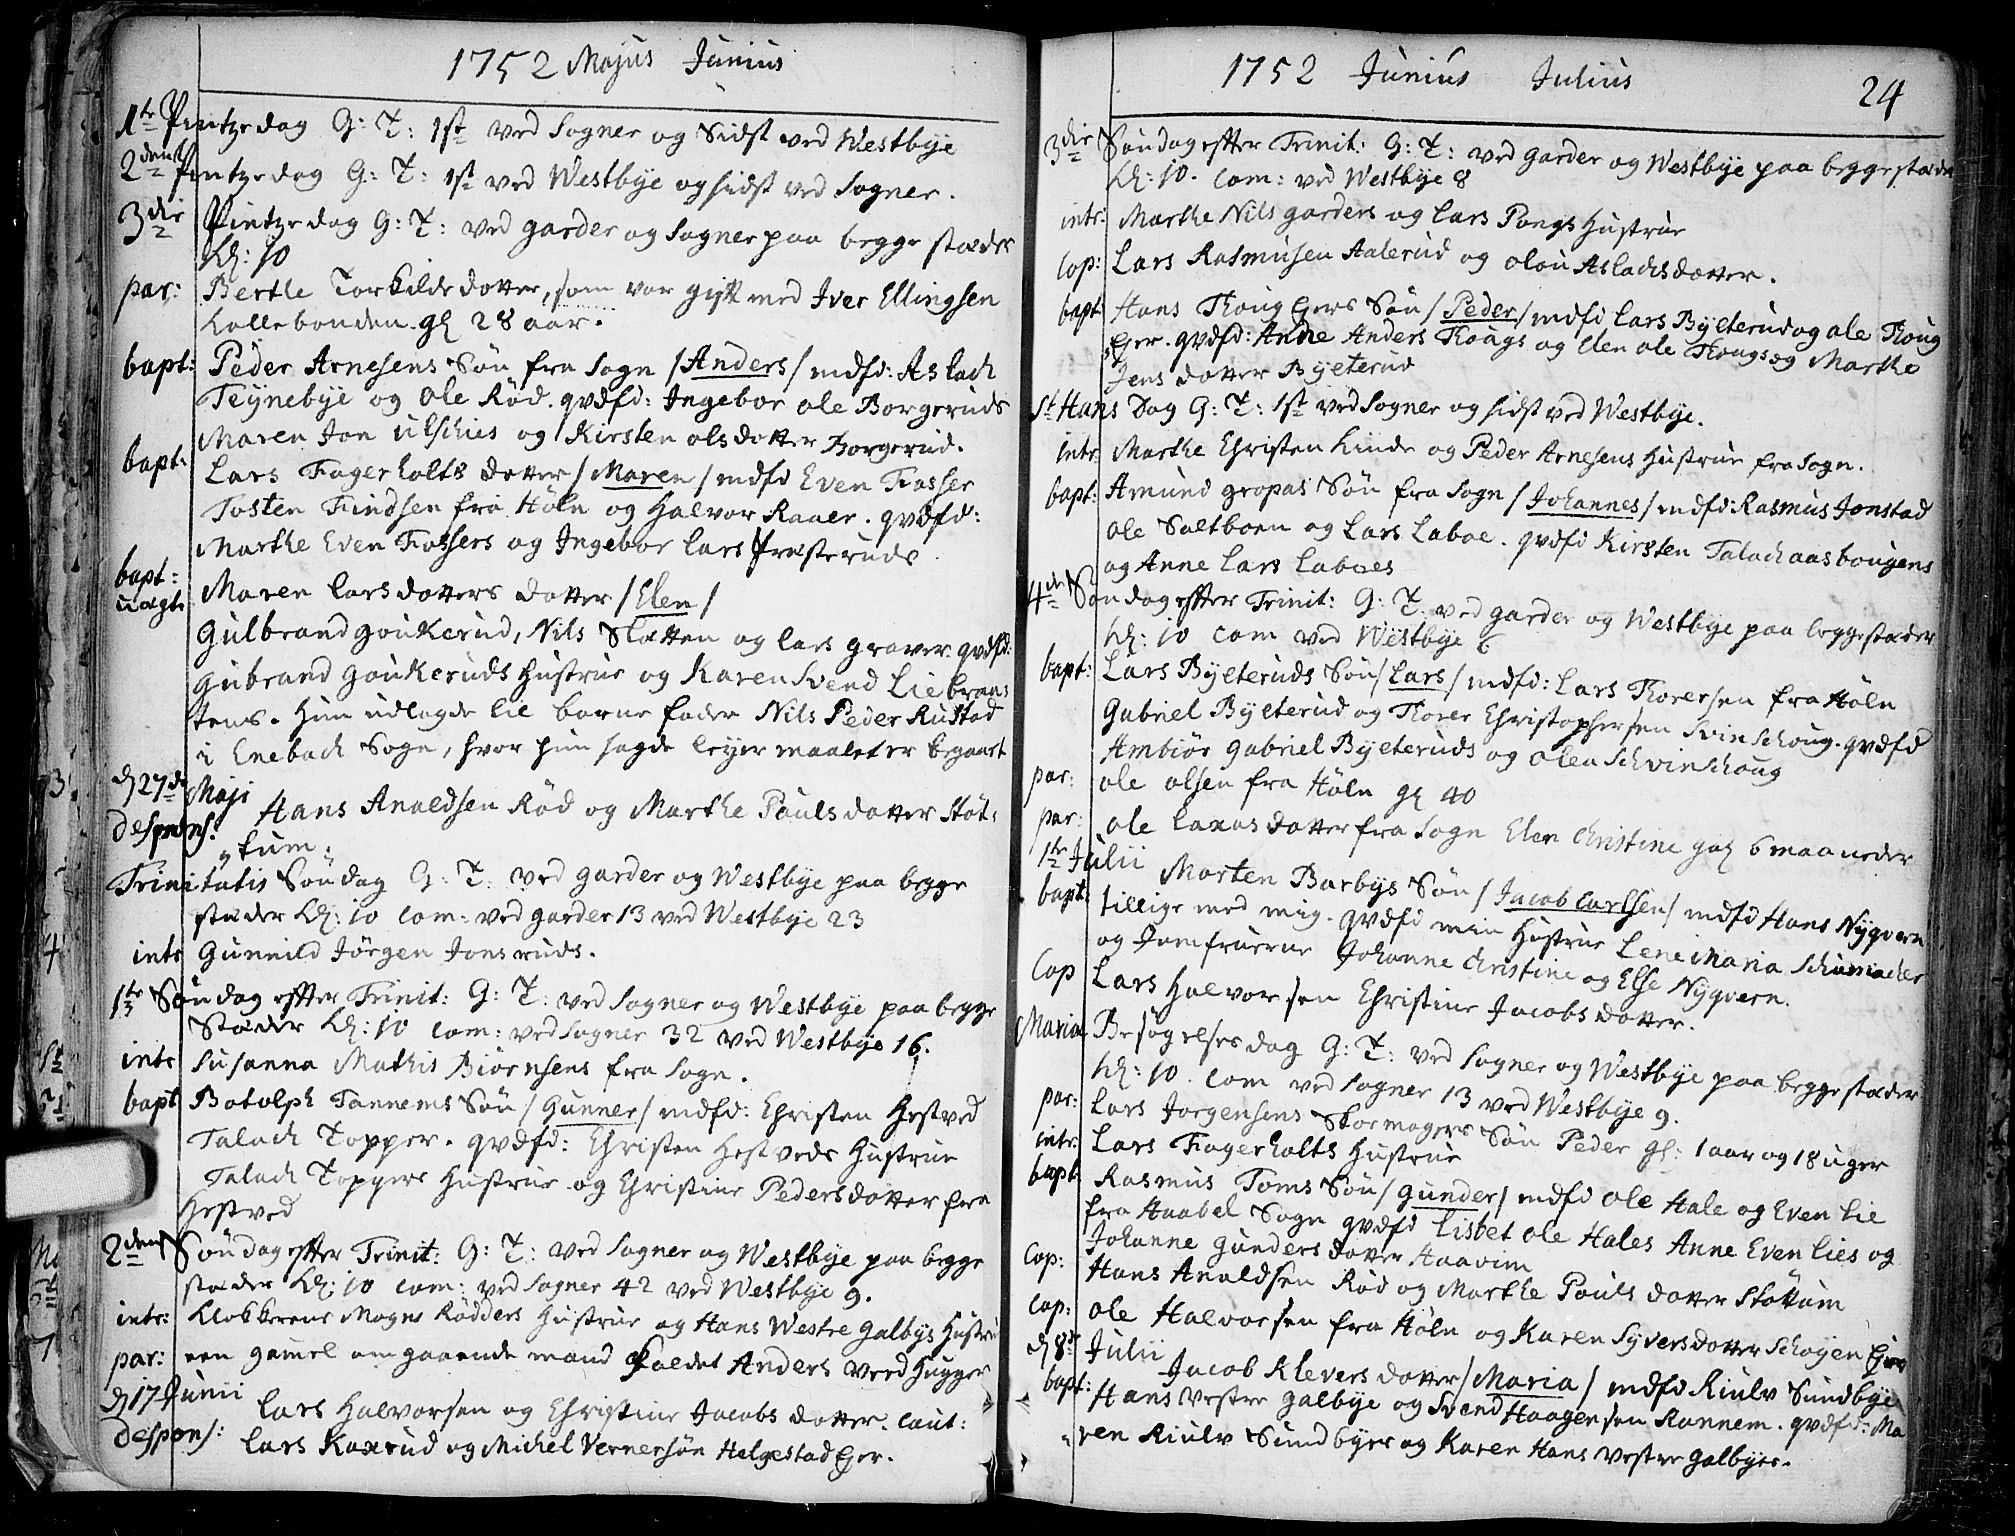 1752 Majus Junius
1te Pintzedag G: T: 1st ved Sogner og Sidst ved Westbye
2den Pintzedag G: T: 1st ved Westbye og sidst ved Sogner.
3die Pintzedag G: T: ved garder og Sogner paa begge stæder
Kl: 10
par: Berthe Torkildsdotter, som var gift med Iver Ellingsen
Kollebonden. gl 28 aar.
bapt: Peder Arnesens Søn fra Sogn /Anders/ mdfd: Aslach
Teÿnebye og Ole Rød. qvdfd: Ingebor ole Borgeruds
Maren Jon ulschies og Kirsten olsdotter Borgerud.
bapt: Lars Fagerholts dotter /Maren/ mdfd Even Fosser
Tosten Findsen fra Höln og Halvor Raaer. qvdfd:
Marthe Even Fossers og Ingebor Lars Presteruds
bapt: Maren Larsdotters dotter /Elen/
uægt: Gulbrand goukerud, Nils Sletten og Lars graver. qvdfd:
Gubrand goukeruds Hustrue og Karen Svend Liebraa
tens. Hun udlagde til barne fader Nils Peder Rustad
i Enebach Sogn, hvor hun sagde leyermaalet er begaaet
d 27de Maji
despons: Hans Analdsen Rød og Marthe Pouls dotter Støt,
tum.
Trinitatis Søndag G: T: ved garder og Westbye paa begge
stæder Kl: 10 com: ved garder 13 ved Westbye 23
intr Gunnild Jörgen Jonsruds.
1te Søndag efter Trinit: G: T: ved Sogner og Westbye paa begge
Stæder Kl: 10 com: ved Sogner 32 ved Westbye 16.
intr Susanna Mathis Biørnsens fra Sogn.
bapt Botolph Tannems Søn /Gunner/ mdfd: Christen Hestved
Talach Topper. qvdfd: Christen Hestveds Hustrue
Talach Toppers Hustrue og Christine Pedersdotter fra
Hestved
2den Søndag efter Trinit: G: T: ved Sogner og Westbye paa begge
stæder Kl: 10 com: ved Sogner 42 ved Westbye 9.
intr: Klokkerens Mogns Rødders Hustrue og Hans Westre galbys Hustru
par: een gamel omgaaende mand Kaldet Anders Veedhugger
d 17 Junii
despons: Lars Halvorsen og Christine Jacobsdotter. Caut:
Lars Kaxrud og Michel Vernersön Helgestad Ejer.
1752 Junius Julius 24
3die Søndag efter Trinit: G: T: ved garder og Westbye paa begge stæder
Kl: 10. com: ved Westbye 8
intr: Marthe Nils garders og Lars Pougs Hustrue
Cop: Lars Rasmusen Aalerud og olou Aslachsdotter.
bapt Hans Thoug Ejers Søn /Peder/ mdfd Lars Byeterud og ole Thoug
Ejer. qvdfd: Anne Anders Thougs og Elen ole Thougs og Marthe
Jens dotter Byeterud
St Hans Dag G: T: 1st ved Sogner og sidst ved Westbye.
intr: Marthe Christen Linde og Peder Arnesens Hustrue fra Sogn.
bapt: Amund gropas Søn fra Sogn /Johannes/ mdfd: Rasmus Jonstad
ole Saltboen og Lars Laboe. qvdfd Kirsten Talach aasbougens
og Anne Lars Laboes
4de Søndag efter Trinit: G: T: ved garder og Westbye paa begge stæder
Kl: 10 com ved Westbye 6
bapt: Lars Byeteruds Søn /Lars/ mdfd: Lars Thorersen fra Höln
Gabriel Byeterud og Thorer Christophersen Svinschoug. qvdfd
Ambiör gabriel Byeteruds og Olea Schvinschoug
par: ole olsen fra Höln gl 40
par: ole Laxaas dotter fra Sogn Elen Christine gal 6 maaneder
1te Julii
bapt: Morten Barbys Søn /Jacob Carlsen/ mdfd Hans Nyqvern
tillige med mig. qvdfd min Hustrue Lene Maria Schumacher
og Jomfruerne Johanne Christine og Else Nyqvern.
Cop Lars Halvorsen Christine Jacobsdotter.
Maria Besøgelses dag G: T: ved Sogner og Westbye paa begge stæder
Kl: 10. com ved Sogner 13 ved Westbye 9.
par: Lars Jorgensens Skomagers Søn Peder gl: 1 aar og 18 uger
intr: Lars Fagerholts Hustrue
bapt Rasmus Toms Søn /Gunder/ mdfd ole Hale og Even Lie
fra Haabel Sogn qvdfd Lisbet ole Hales Anne Even Lies og
Johanne gundersdotter Haavim
Cop: Hans Analdsen Rød og Marthe Pouls dotter Støttum
Cop: ole Halvorsen fra Höln og Karen Syversdotter Schoyen Ejer
d 8de Julii
bapt: Jacob Klevers dotter /Maria/ mdfd Riulv Sundbye
Hans vestre galbye og Svend Haagensen Rannem. qvdfd: Ma
ren Riulv Sundbyes og Karen Hans vestre galbyes.